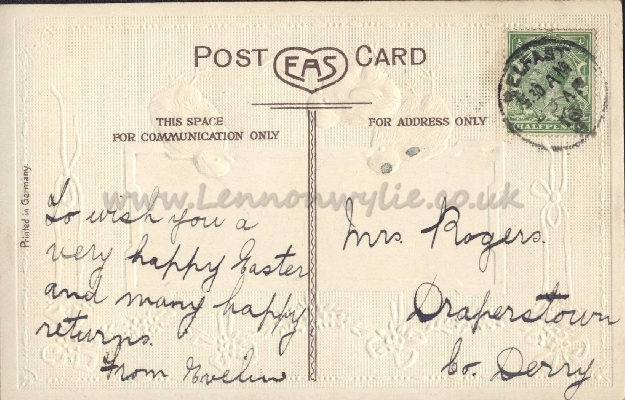 POST EAS CARD
THIS SPACE
FOR COMMUNICATION ONLY
FOR ADDRESS ONLY
BELFAST
HALFPENNY
Printed in Germany.
www.Lennonwylie.co.uk
To wish you a
very happy Easter
and many happy
returns.
From Evelin
Mrs. Rogers.
Draperstown
Co. Derry